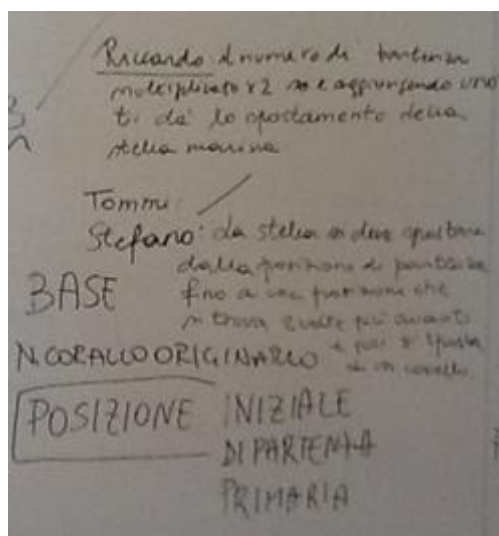 Riccardo il numero di partenza
moltiplicato x2 e aggiungendo uno
ti dà lo spostamento della
stella marina
Tommi:
Stefano: la stella si deve spostare
dalla posizione di partenza
fino a una posizione che
si trova 2 volte più avanti
e poi si sposta
di un corallo
BASE
N. CORALLO ORIGINARIO
POSIZIONE INIZIALE
DI PARTENZA
PRIMARIA